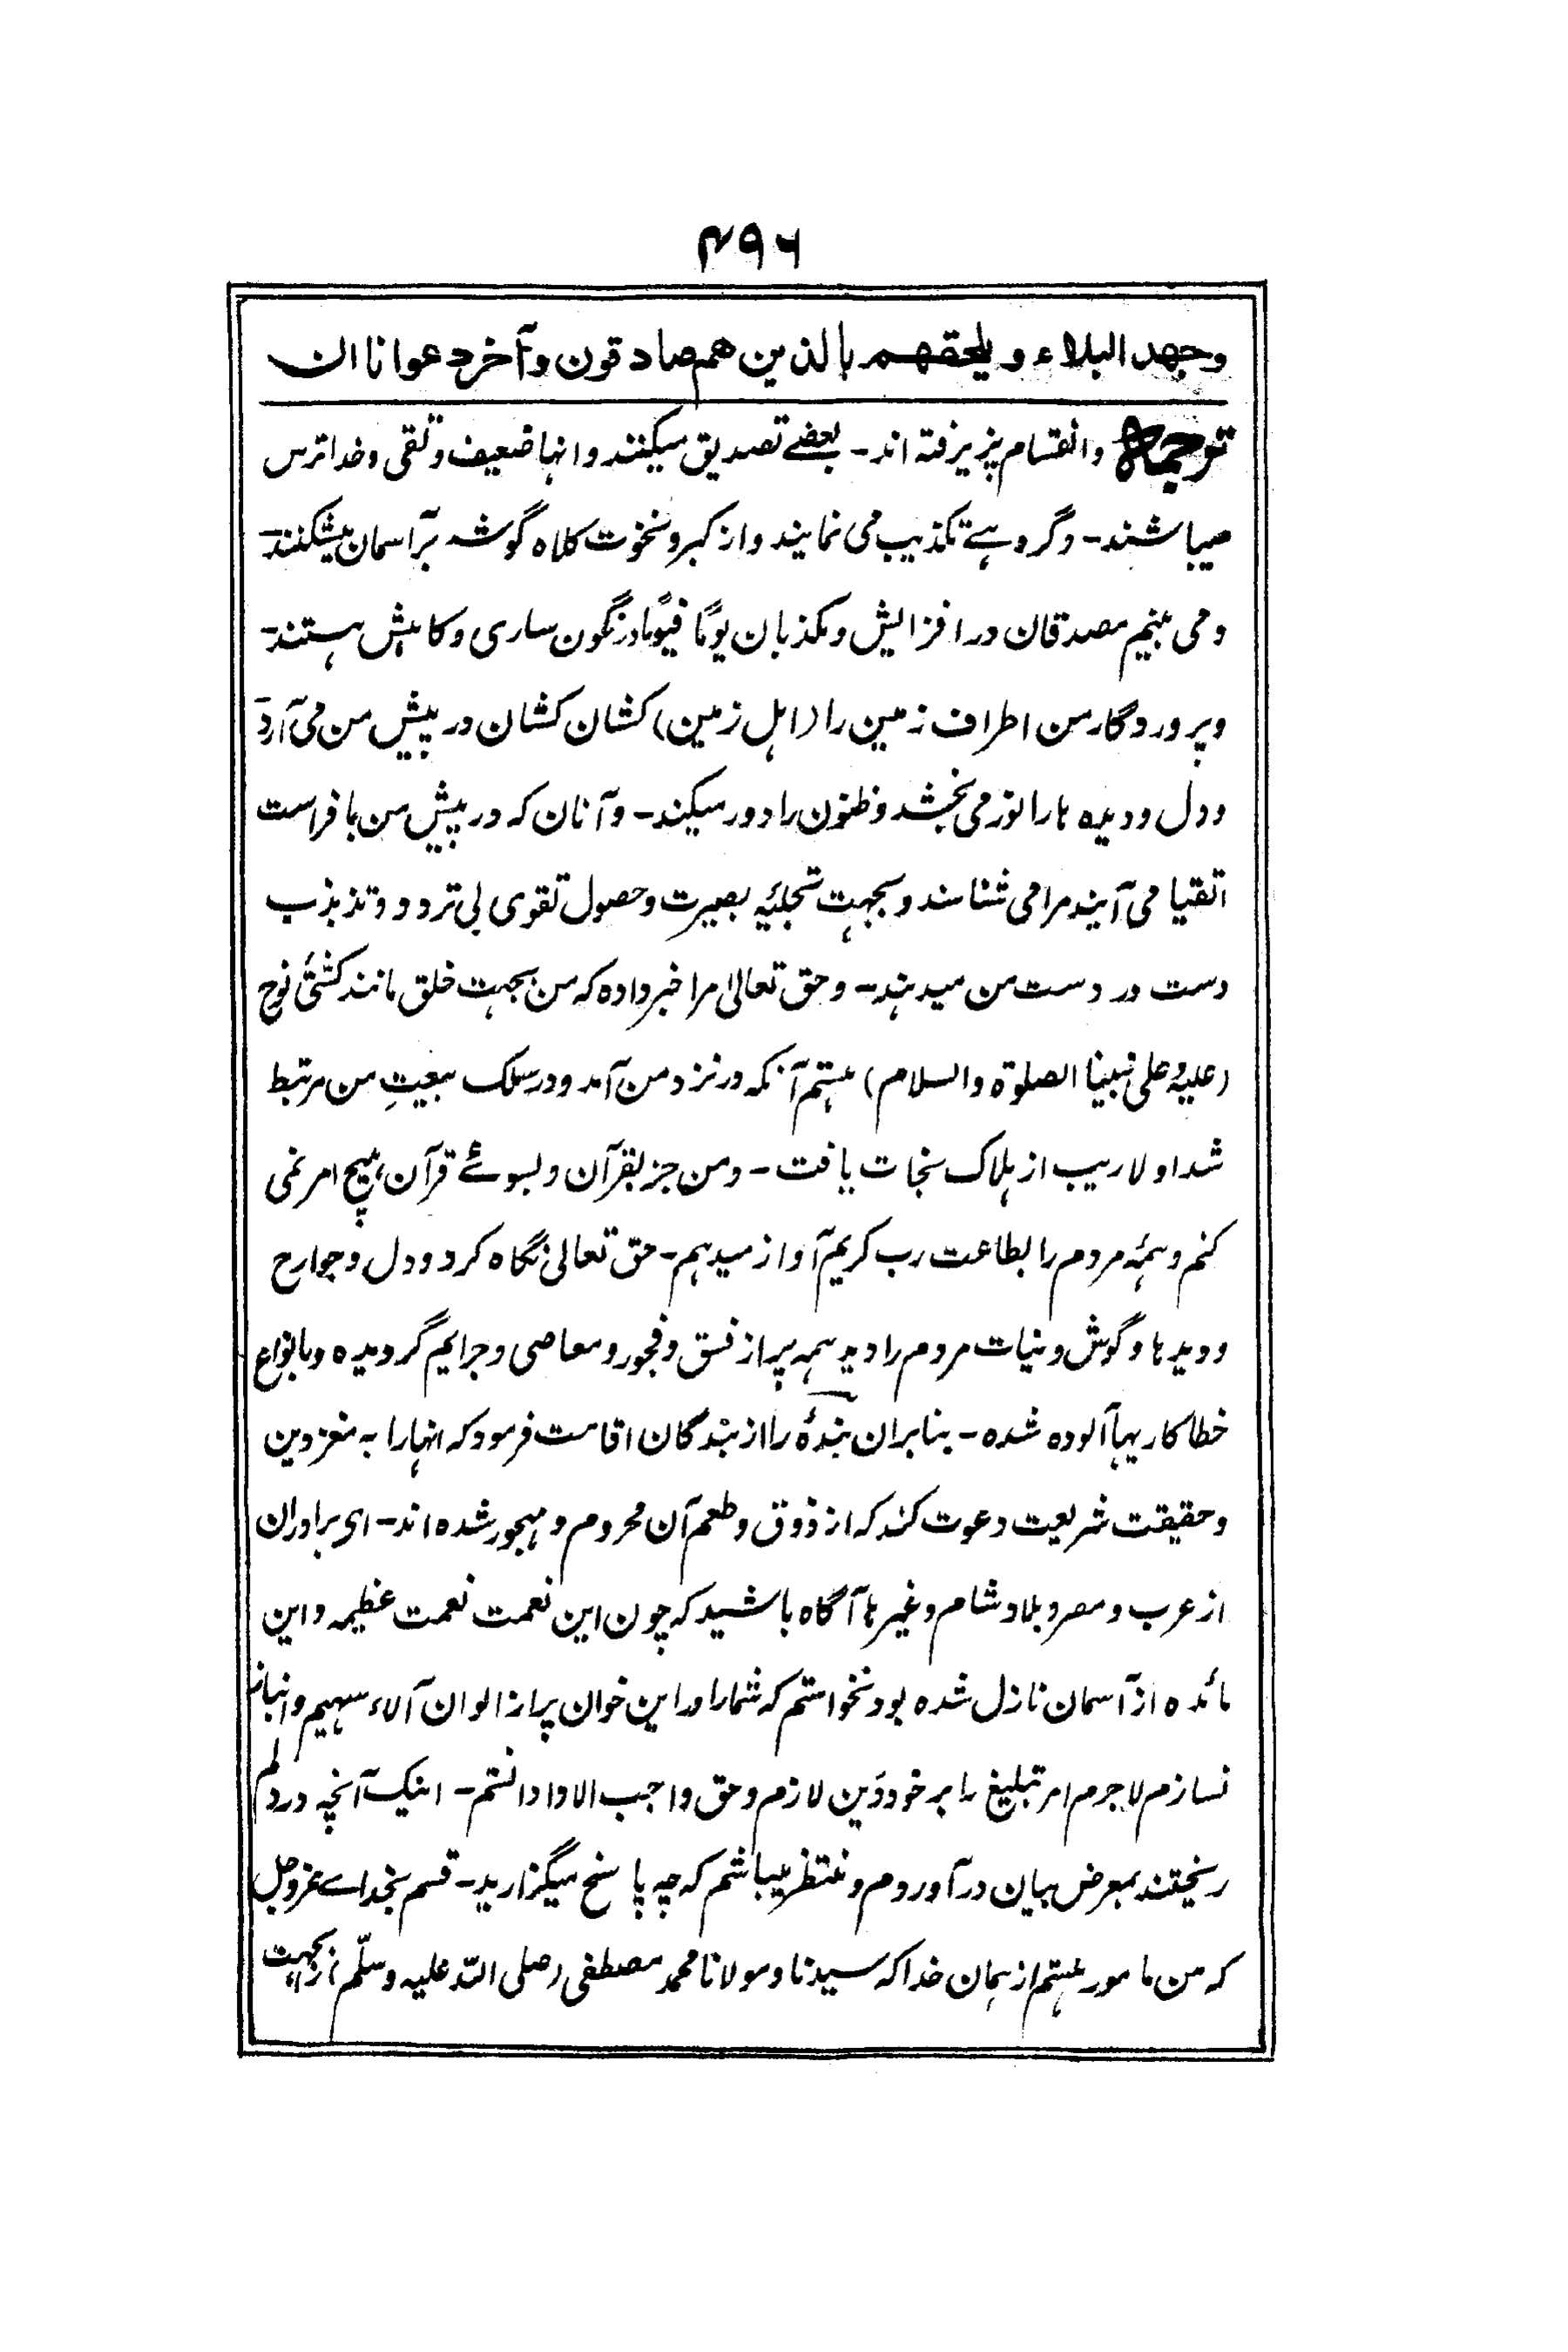 ۴۹۶
وجهد البلاء ويلحقهم بالذين هم صادقون وآخر دعوانا ان
ترجمة وانقسام پزیرفته اند - بعضے تصدیق میکنند و انہا ضعیف و تقی و خدا ترس
میباشند - و گروہے تکذیب می نمایند و از کبر و نخوت کلاہ گوشہ بر آسمان میشکنند -
و می بینم مصدقان در افزایش و مکذبان یومًا فیومًا در نگون ساری و کاہش ہستند -
و پروردگار من اطراف زمین را (اہل زمین) کشان کشان در پیش من می آرد
و دل و دیدہ ہا را نور می بخشد و ظنون را دور میکند - و آنان کہ در پیش من با فراست
اتقیا می آیند مرا می شناسند و بجہت تجلیۂ بصیرت و حصول تقوی بی تردد و تذبذب
دست در دست من میدہند - و حق تعالیٰ مرا خبر دادہ کہ من بجہت خلق مانند کشتئ نوح
(علیہ و علی نبینا الصلوۃ والسلام) ہستم آنکہ در نزد من آمد و در سلک بیعتِ من مرتبط
شد او لاریب از ہلاک نجات یافت - و من جز بقرآن و بسوئے قرآن ہیچ امر نمی
کنم و ہمۂ مردم را بطاعت رب کریم آواز میدہم - حق تعالیٰ نگاہ کرد و دل و جوارح
و دیدہا و گوش و نیات مردم را دید ہمہ پر از فسق و فجور و معاصی و جرایم گردیدہ و بانواع
خطا کاریہا آلودہ شدہ - بنابران بندۂ را از بندگان اقامت فرمود کہ انہا را بہ مغز دین
و حقیقت شریعت دعوت کند کہ از ذوق و طعم آن محروم و مہجور شدہ اند - ای برادران
از عرب و مصر و بلاد شام و غیرہا آگاہ باشید کہ چون این نعمت نعمت عظیمہ و این
مائدہ از آسمان نازل شدہ بود نخواستم کہ شما را در این خوان پر از الوان آلاء سہیم و انباز
نسازم لاجرم امر تبلیغ را بر خود دَین لازم و حق واجب الادا دانستم - اینک آنچہ در دلم
ریختند بمعرض بیان در آوردم و منتظر میباشم کہ چہ پاسخ میگزارید - قسم بخداے عزوجل
کہ من مامور ہستم از ہمان خدا کہ سیدنا و مولانا محمد مصطفی (صلی اللہ علیہ وسلّم) از بجہت